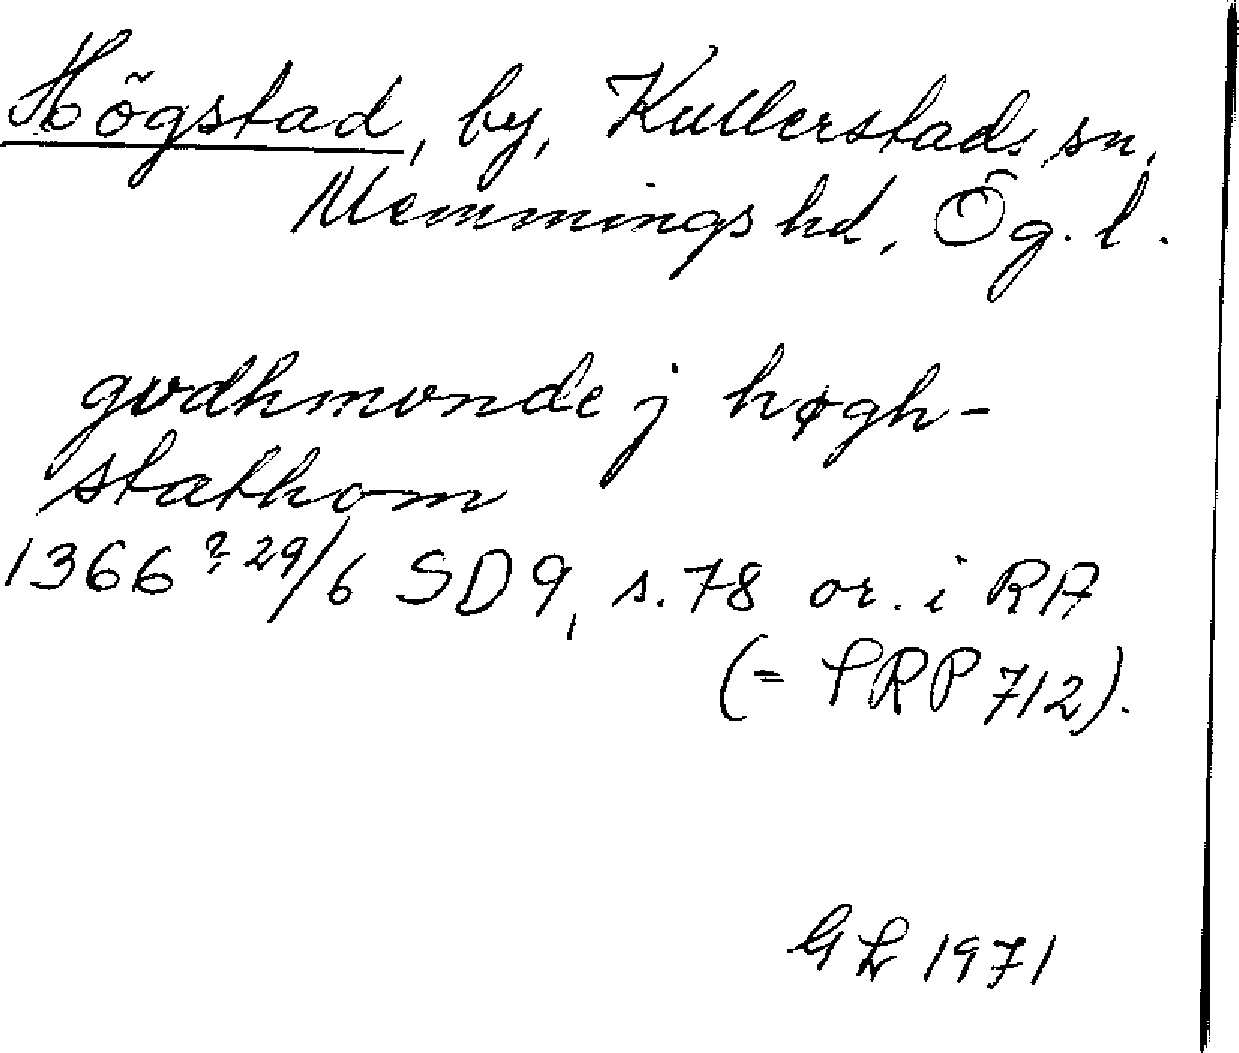 Högstad, by, Kullerstads sn,
Memmings hd, Ög. l.
gvdhmvnde j høgh-
stathom
1366 ? 29/6 SD 9, s. 78 or. i RA
(= SRP 712).
GL 1971